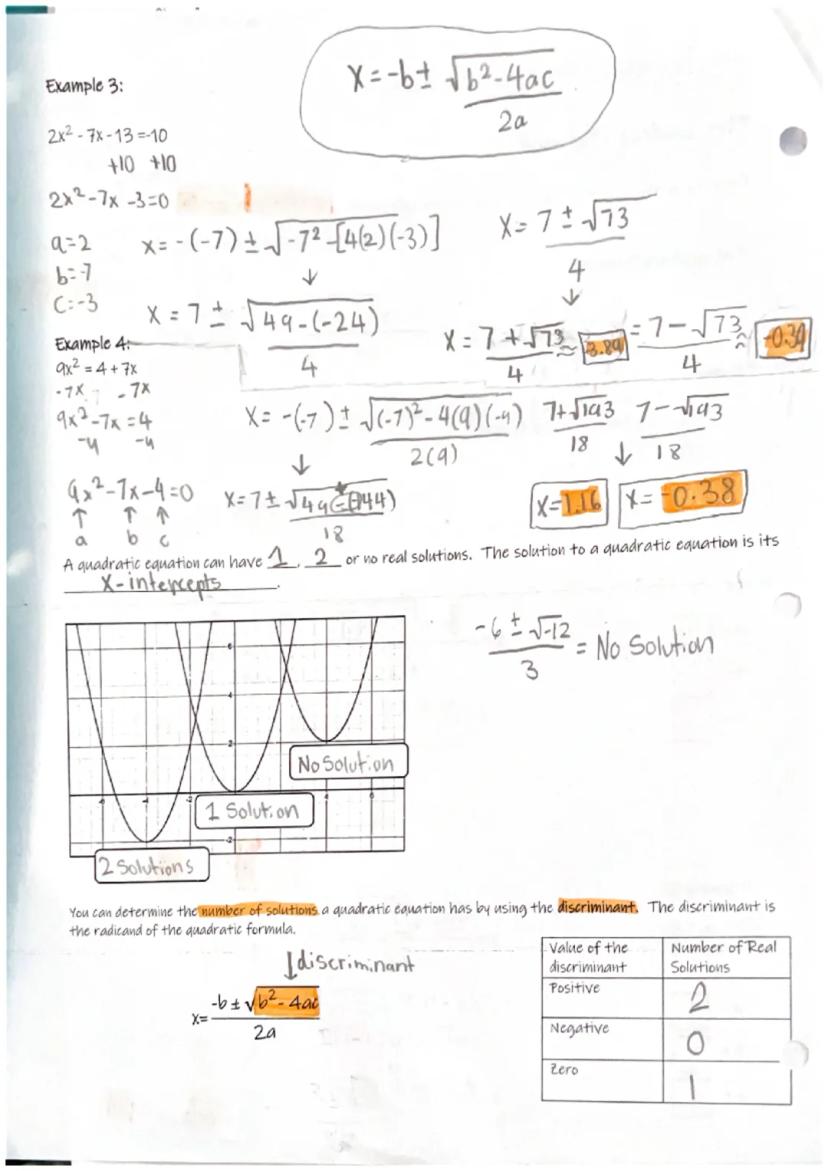 x = -b ± √b² - 4ac
2a
Example 3:
2x² - 7x - 13 = -10
+10 +10
2x² - 7x - 3 = 0
a = 2
b = -7
c = -3
x = -(-7) ± √-7² - [4(2)(-3)]
↓
x = 7 ± √49 - (-24)
4
x = 7 ± √73
4
↓
x = 7 + √73 ≈ 3.89
4
= 7 - √73 ≈ -0.39
4
Example 4:
9x² = 4 + 7x
-7x -7x
9x² - 7x = 4
-4 -4
9x² - 7x - 4 = 0
↑ ↑ ↑
a b c
x = -(-7) ± √(-7)² - 4(9)(-4)
2(9)
↓
x = 7 ± √49 - (-144)
18
7 + √193 7 - √193
18 ↓ 18
x = 1.16 x = -0.38
A quadratic equation can have 1, 2 or no real solutions. The solution to a quadratic equation is its
x-intercepts.
-6 ± √-12 = No Solution
3
6
4
2
No Solution
1 Solution
-2
2 Solutions
You can determine the number of solutions a quadratic equation has by using the discriminant. The discriminant is
the radicand of the quadratic formula.
↓discriminant
x = -b ± √b² - 4ac
2a
Value of the discriminant Number of Real Solutions
Positive 2
Negative 0
Zero 1